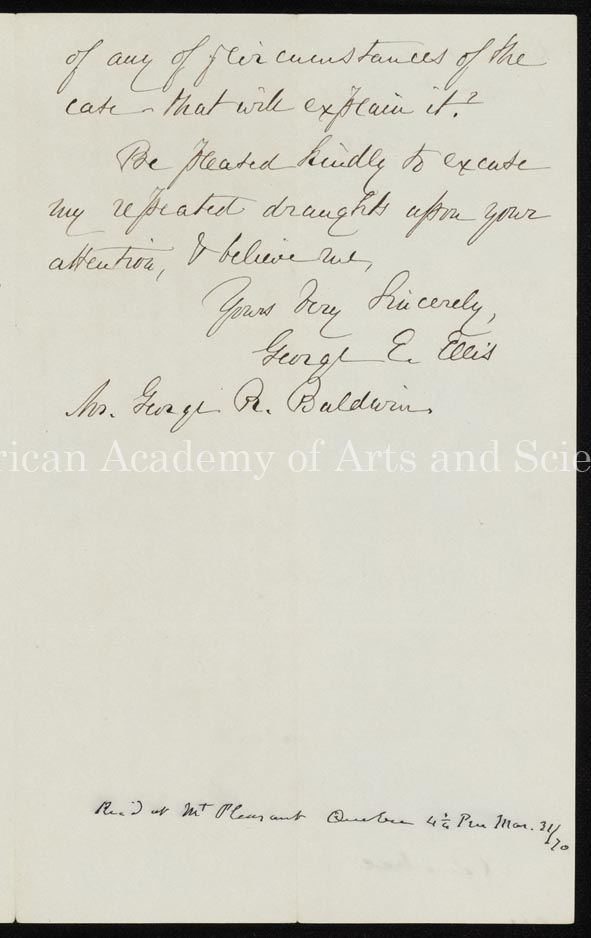 of any of circumstances of the
case that will explain it?
Be pleased kindly to excuse
my repeated draughts upon your
attention, & believe me,
Yours Very Sincerely,
George E. Ellis
Mr. George R. Baldwin.
rican Academy of Arts and Scie
Rec'd at Mt Pleasant Quebec 4¼ Pm Mar. 31/70